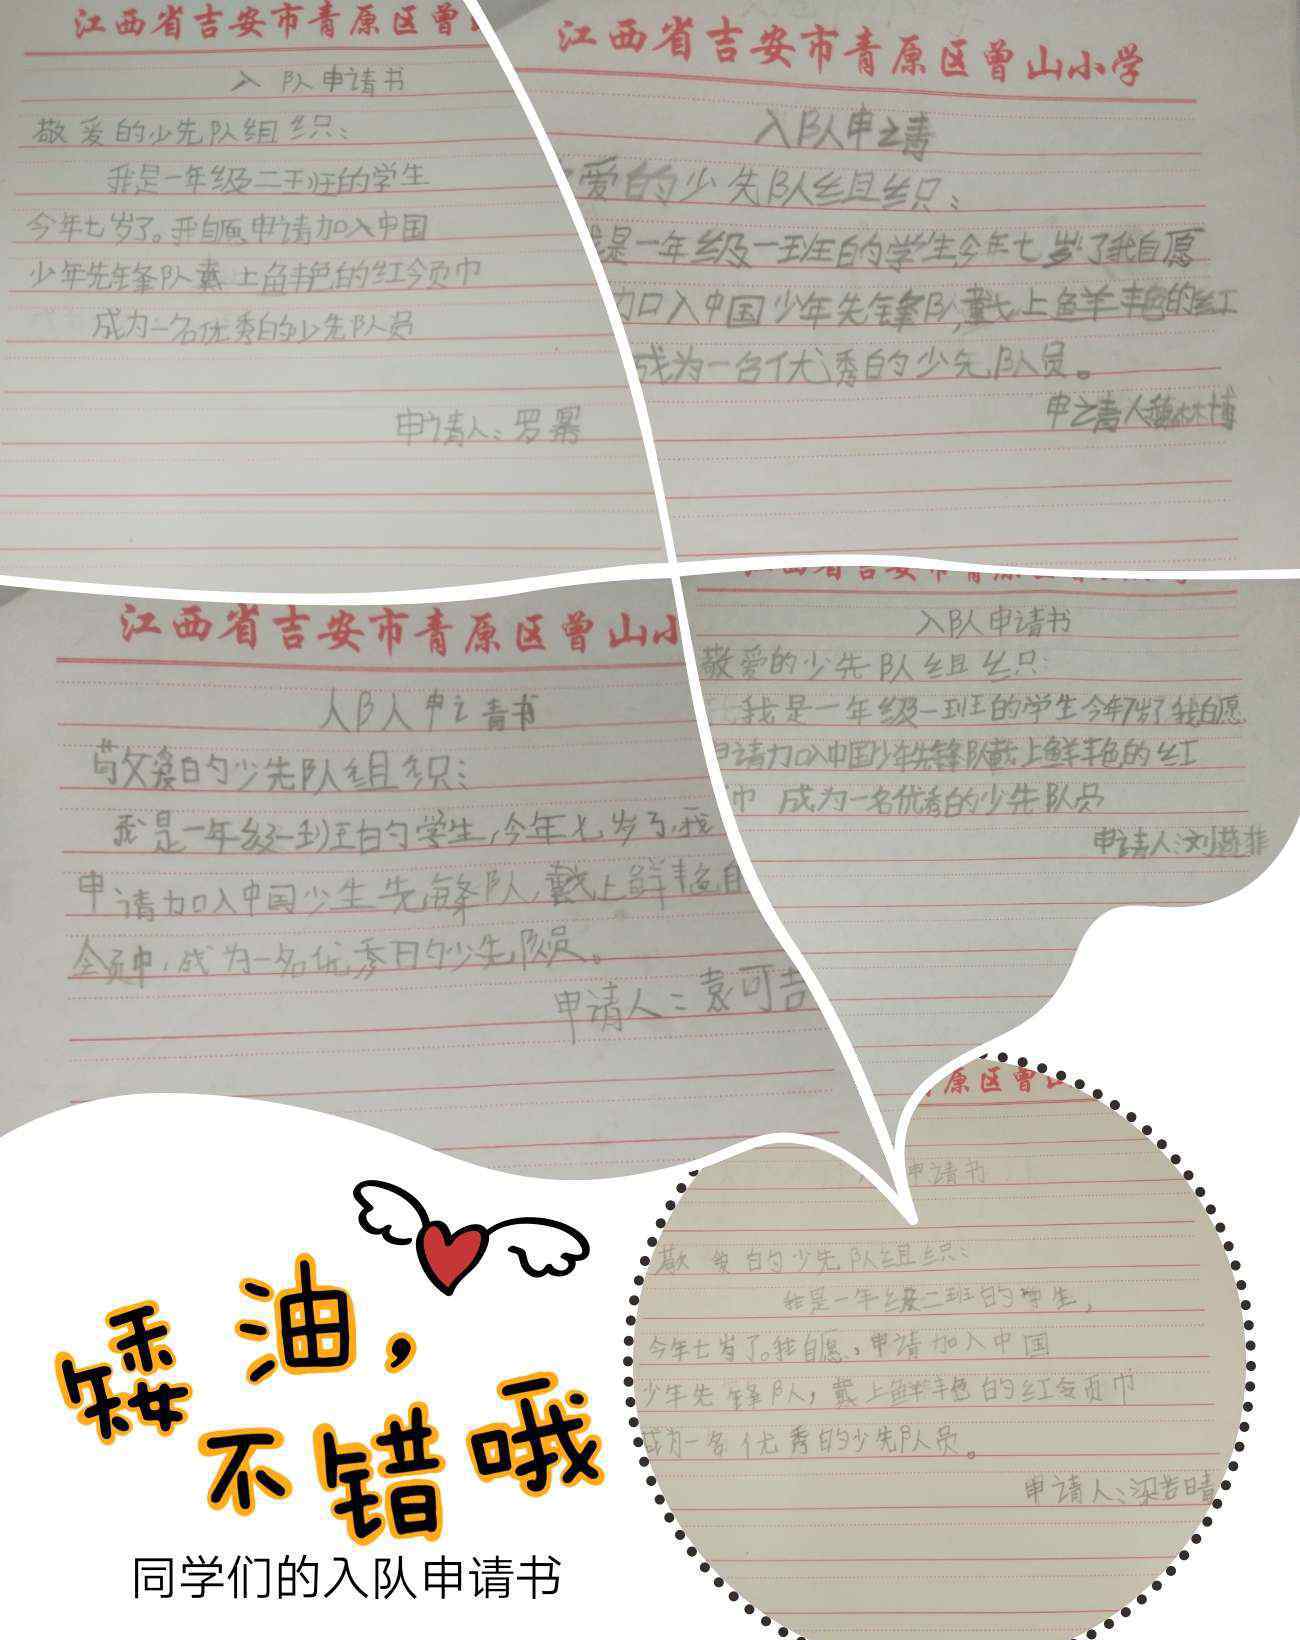 江西省吉安市青原区曾
入队申请书
敬爱的少先队组织：
我是一年级二班的学生
今年七岁了。我自愿申请加入中国
少年先锋队戴上鲜艳的红领巾
成为一名优秀的少先队员
申请人：罗
江西省吉安市青原区曾山小学
入队申请
爱的少先队组织：
是一年级一班的学生今年七岁了我自愿
加入中国少年先锋队,戴上鲜艳的红
成为一名优秀的少先队员。
申请人魏林博
江西省吉安市青原区曾山小
人队申请书
敬爱的少先队组织：
我是一年级一班的学生,今年七岁了,我
申请加入中国少年先锋队,戴上鲜艳
领巾,成为一名优秀的少先队员。
申请人：袁可吉
入队申请书
敬爱的少先队组织：
我是一年级一班的学生今年7岁了我自愿
申请加入中国少年先锋队戴上鲜艳的红
巾 成为一名优秀的少先队员
申请人：刘
原区曾
申请书
敬爱的少先队组织：
我是一年级二班的学生,
今年七岁了。我自愿,申请加入中国
少年先锋队,戴上鲜艳的红领巾
成为一名优秀的少先队员。
申请人：梁若晴
矮油，
不错哦
同学们的入队申请书